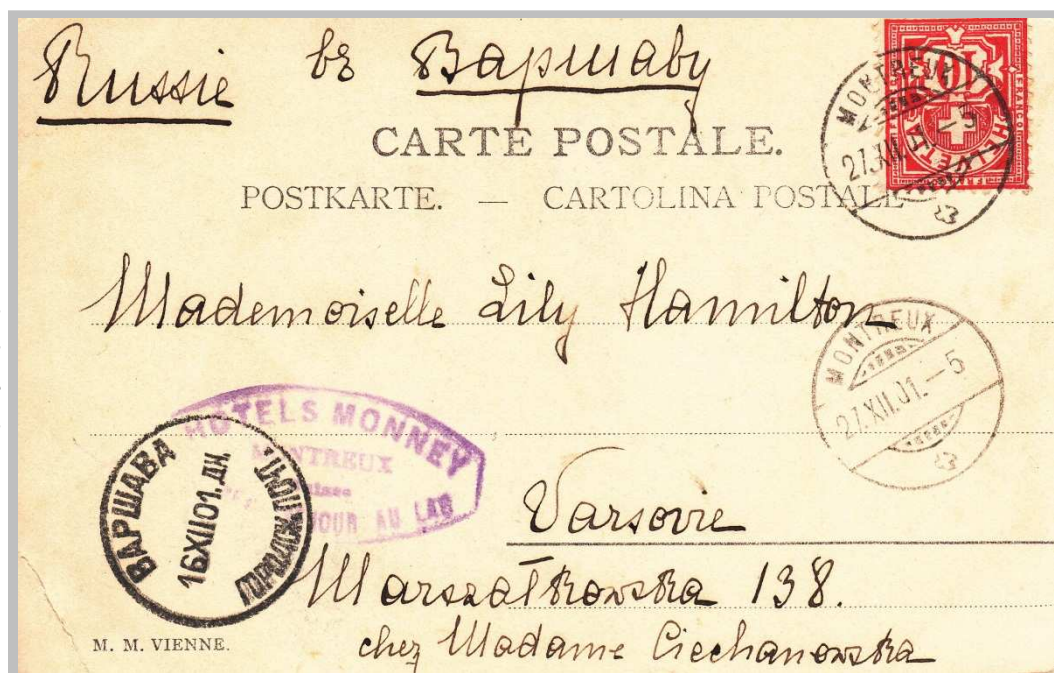 Russie въ Варшаву
CARTE POSTALE.
POSTKARTE. — CARTOLINA POSTALE
FRANCO
10
HELVETIA
MONTREUX
27.XII.01.–5
Mademoiselle Lily Hamilton
MONTREUX
27.XII.01.–5
HOTELS MONNEY
MONTREUX
Suisse
SÉJOUR AU LAC
ВАРШАВА
16XII01.ДН.
Varsovie
Marszałkowska 138.
chez Madame Ciechanowska
M. M. VIENNE.